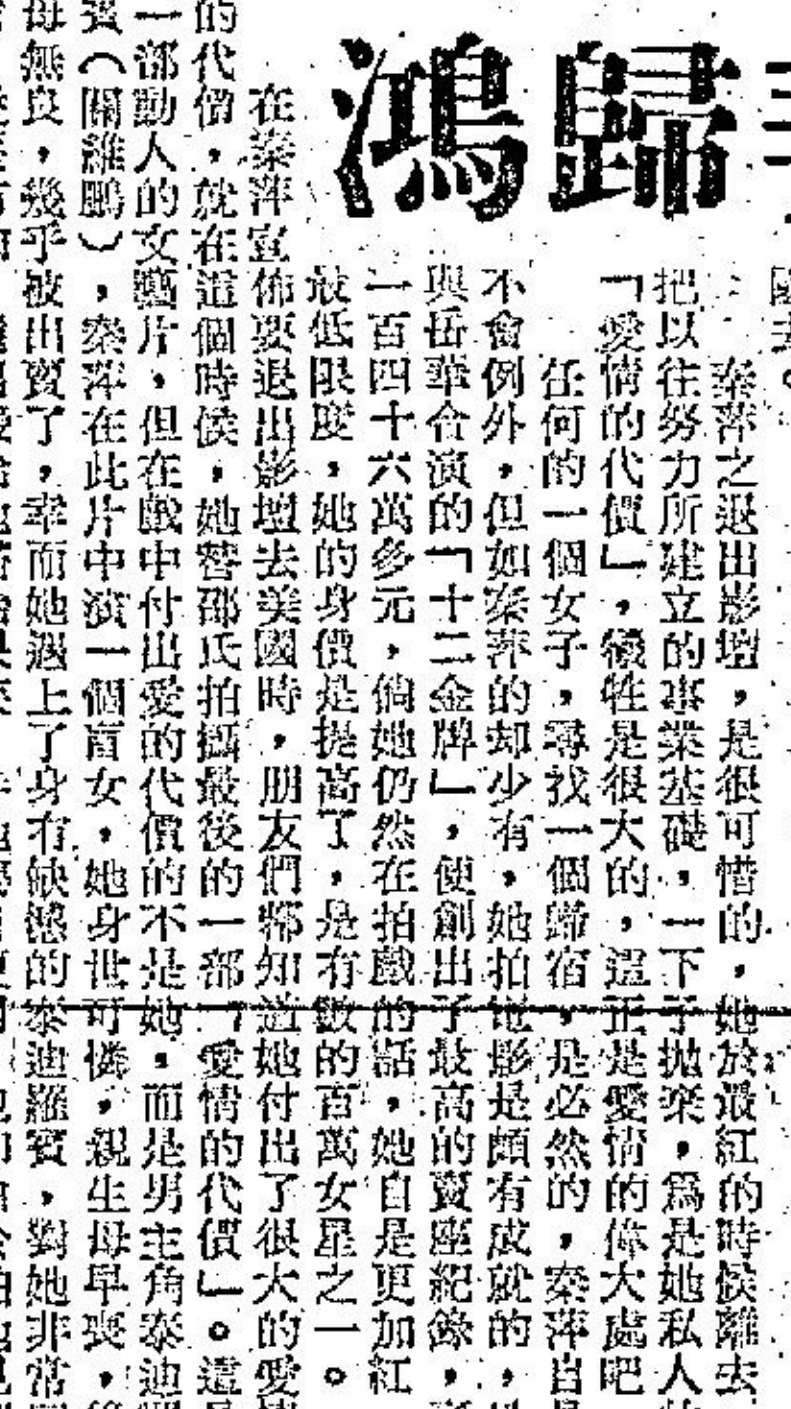 歸鴻
國去。
秦萍之退出影壇，是很可惜的，她於最紅的時候離去
把以往努力所建立的事業基礎，一下子拋棄，爲是她私人
「愛情的代價」，犧牲是很大的，這正是愛情的偉大處吧
任何的一個女子，尋找一個歸宿，是必然的，秦萍自
不會例外，但如秦萍的却少有，她拍電影是頗有成就的，
與岳華合演的「十二金牌」，便創出了最高的賣座紀錄，
一百四十六萬多元，倘她仍然在拍戲的話，她自是更加紅
最低限度，她的身價是提高了，是有數的百萬女星之一。
在秦萍宣佈要退出影壇去美國時，朋友們都知道她付出了很大的愛
的代價，就在這個時侯，她替邵氏拍攝最後的一部「愛情的代價」。這
一部動人的文藝片，但在戲中付出愛的代價的不是她，而是男主角泰迪
賓（關維鵬），秦萍在此片中演一個盲女，她身世可憐，親生母早喪，
母無良，幾乎被出賣了，幸而她遇上了身有缺憾的泰迪羅賓，對她非常